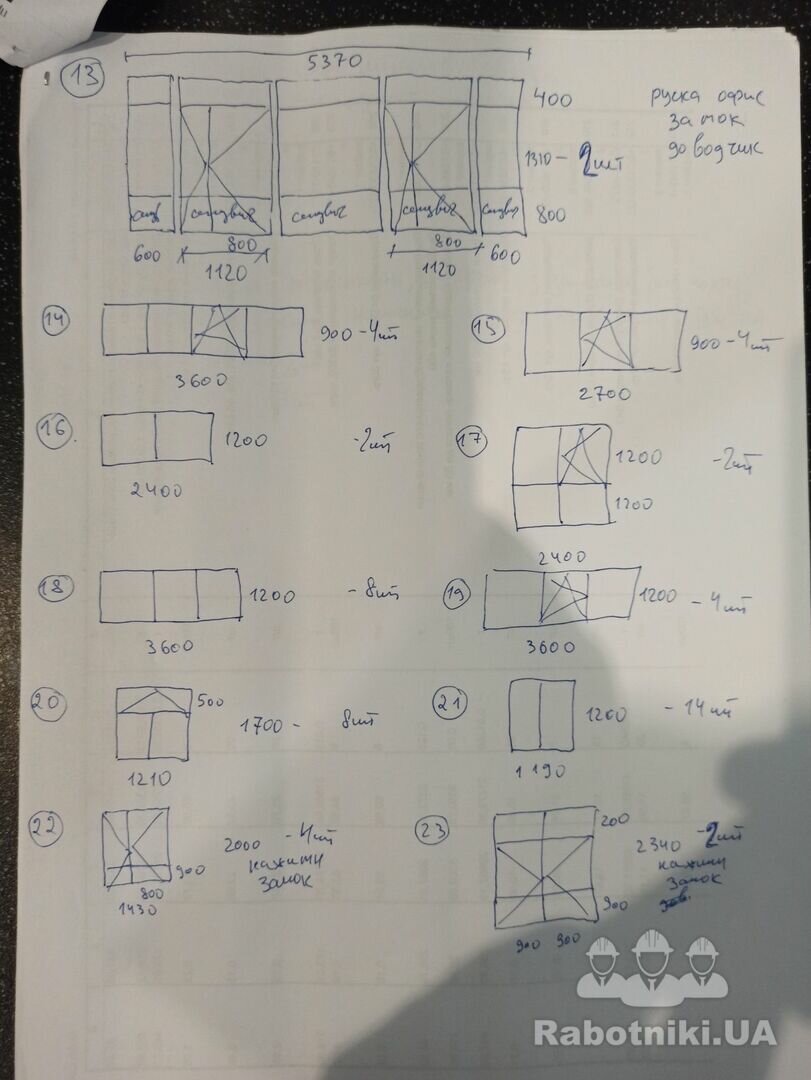 13
5370
400
руска офис
замок
доводчик
1310 - 2шт
санд
сендвич
сендвич
сендвич
сендвич
800
600
800
1120
800
1120
600
14
900 - 4шт
3600
15
900 - 4шт
2700
16
1200
- 2шт
2400
17
1200
- 2шт
1200
2400
18
1200
- 8шт
3600
19
1200 - 4шт
3600
20
500
1700 - 8шт
1210
21
1200 - 14шт
1190
22
2000 - 4шт
нажимн
замок
900
800
1430
23
200
2340 - 2шт
нажимн
замок
дов.
900
900 900
Rabotniki.UA